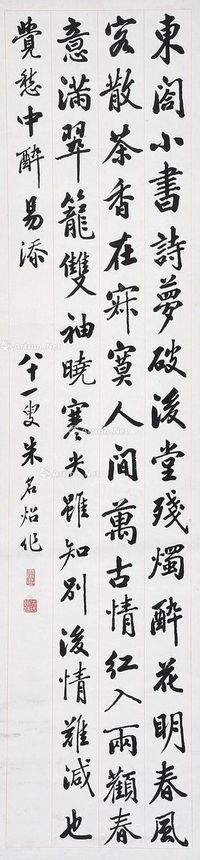 東閣小書詩夢破後堂殘燭醉花明春風
客散茶香在寂寞人間萬古情紅入兩顴春
意滿翠籠雙袖曉寒尖雖知別後情難減也
覺愁中醉易添
八十一叟朱名焰作